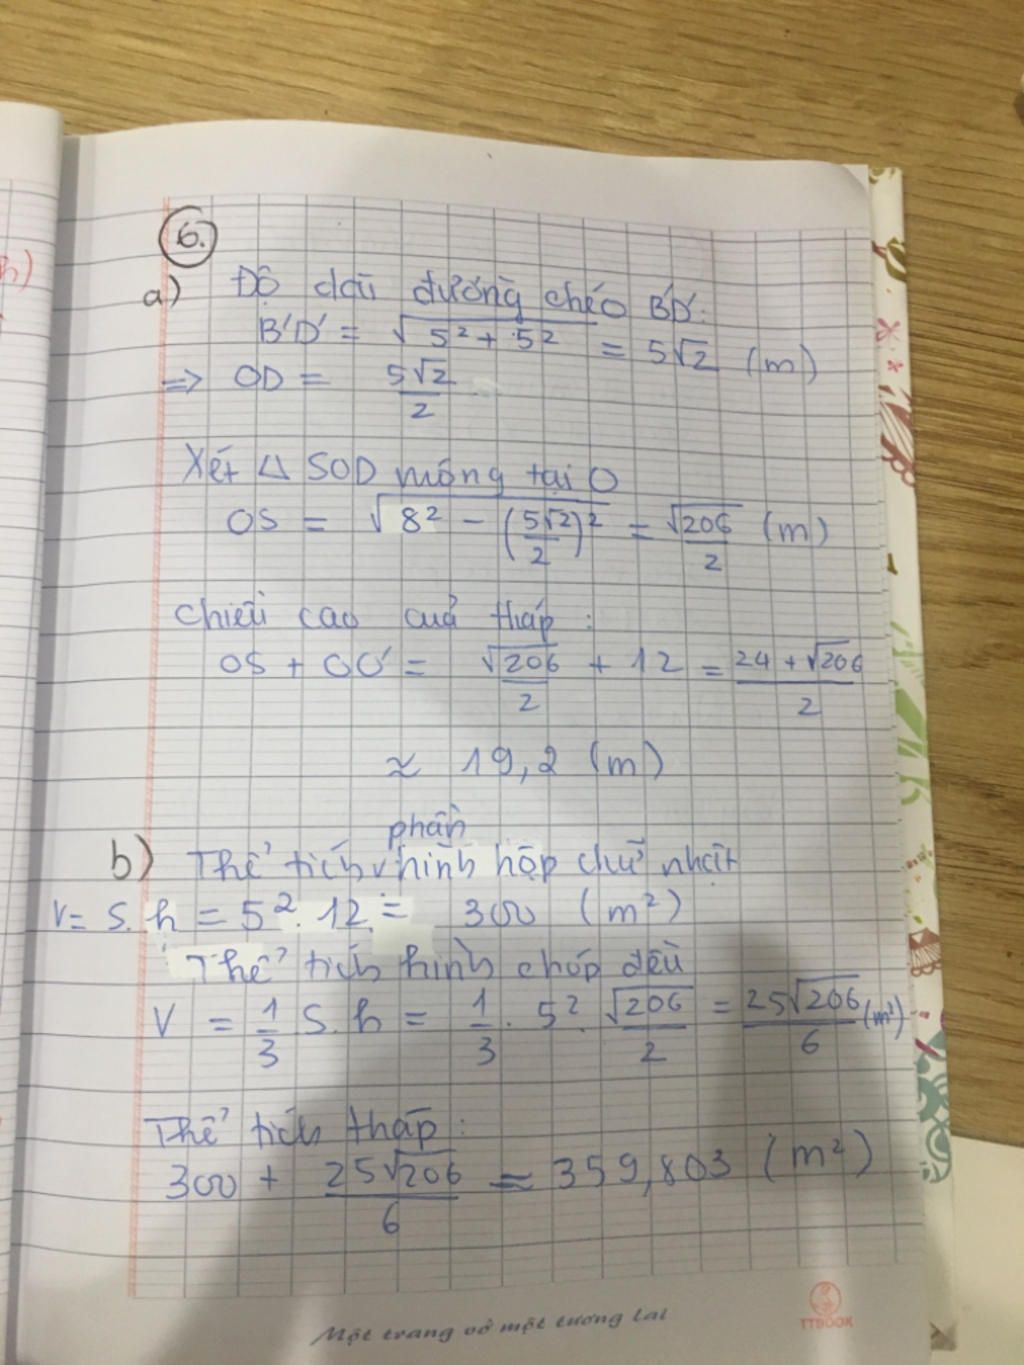 h)
6.
a) Độ dài đường chéo B'D':
B'D' = √(5² + 5²) = 5√2 (m)
=> OD = 5√2/2
Xét Δ SOD mông tại O
OS = √(8² - (5√2/2)²) = √206/2 (m)
Chiều cao của tháp :
OS + OO' = √206/2 + 12 = (24 + √206)/2
≈ 19,2 (m)
phần
b) Thể tích v hình hộp chữ nhật
V = S.h = 5².12 = 300 (m²)
Thể tích hình chóp đều
V = 1/3 S.h = 1/3 . 5² . √206/2 = 25√206/6 (m³)
Thể tích tháp :
300 + 25√206/6 = 359,803 (m²)
Một trang vở một tương lai
TTBOOK